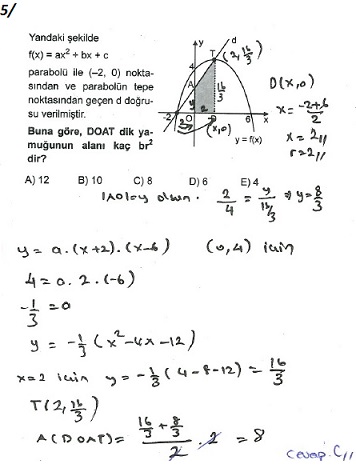 5/
Yandaki şekilde
f(x) = ax² + bx + c
parabolü ile (–2, 0) nokta-
sından ve parabolün tepe
noktasından geçen d doğru-
su verilmiştir.
Buna göre, DOAT dik ya-
muğunun alanı kaç br²
dir?
y
T
d
(2, 16/3)
4
A
y
16/3
2
–2
0
(x,0)
6
x
y = f(x)
D(x,0)
x = -2+6/2
x = 2//
r = 2//
A) 12 B) 10 C) 8 D) 6 E) 4
|AO|=y olsun. 2/4 = y/16/3 ⇒ y = 8/3
y = a.(x+2).(x-6) (0,4) için
4 = a.2.(-6)
-1/3 = a
y = -1/3 (x²-4x-12)
x=2 için y = -1/3 (4-8-12) = 16/3
T(2, 16/3)
A(DOAT) = 16/3 + 8/3 / 2 . 2 = 8
cevap C//